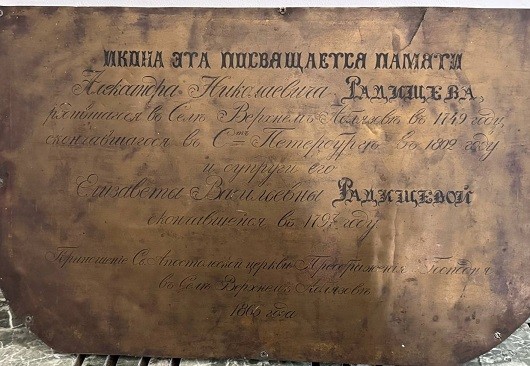 ИКОНА ЭТА ПОСВЯЩАЕТСЯ ПАМЯТИ
Александра Николаевича РАДИЩЕВА,
родившагося въ Селѣ Верхнемъ Аблязовѣ въ 1749 году,
скончавшагося въ С-тъ Петербургѣ въ 1802 году
и супруги его
Елизаветы Васильевны РАДИЩЕВОЙ
скончавшейся въ году
Приношенье церкви Преображенія Господня
въ Селѣ Верхнемъ Аблязовѣ
186 года